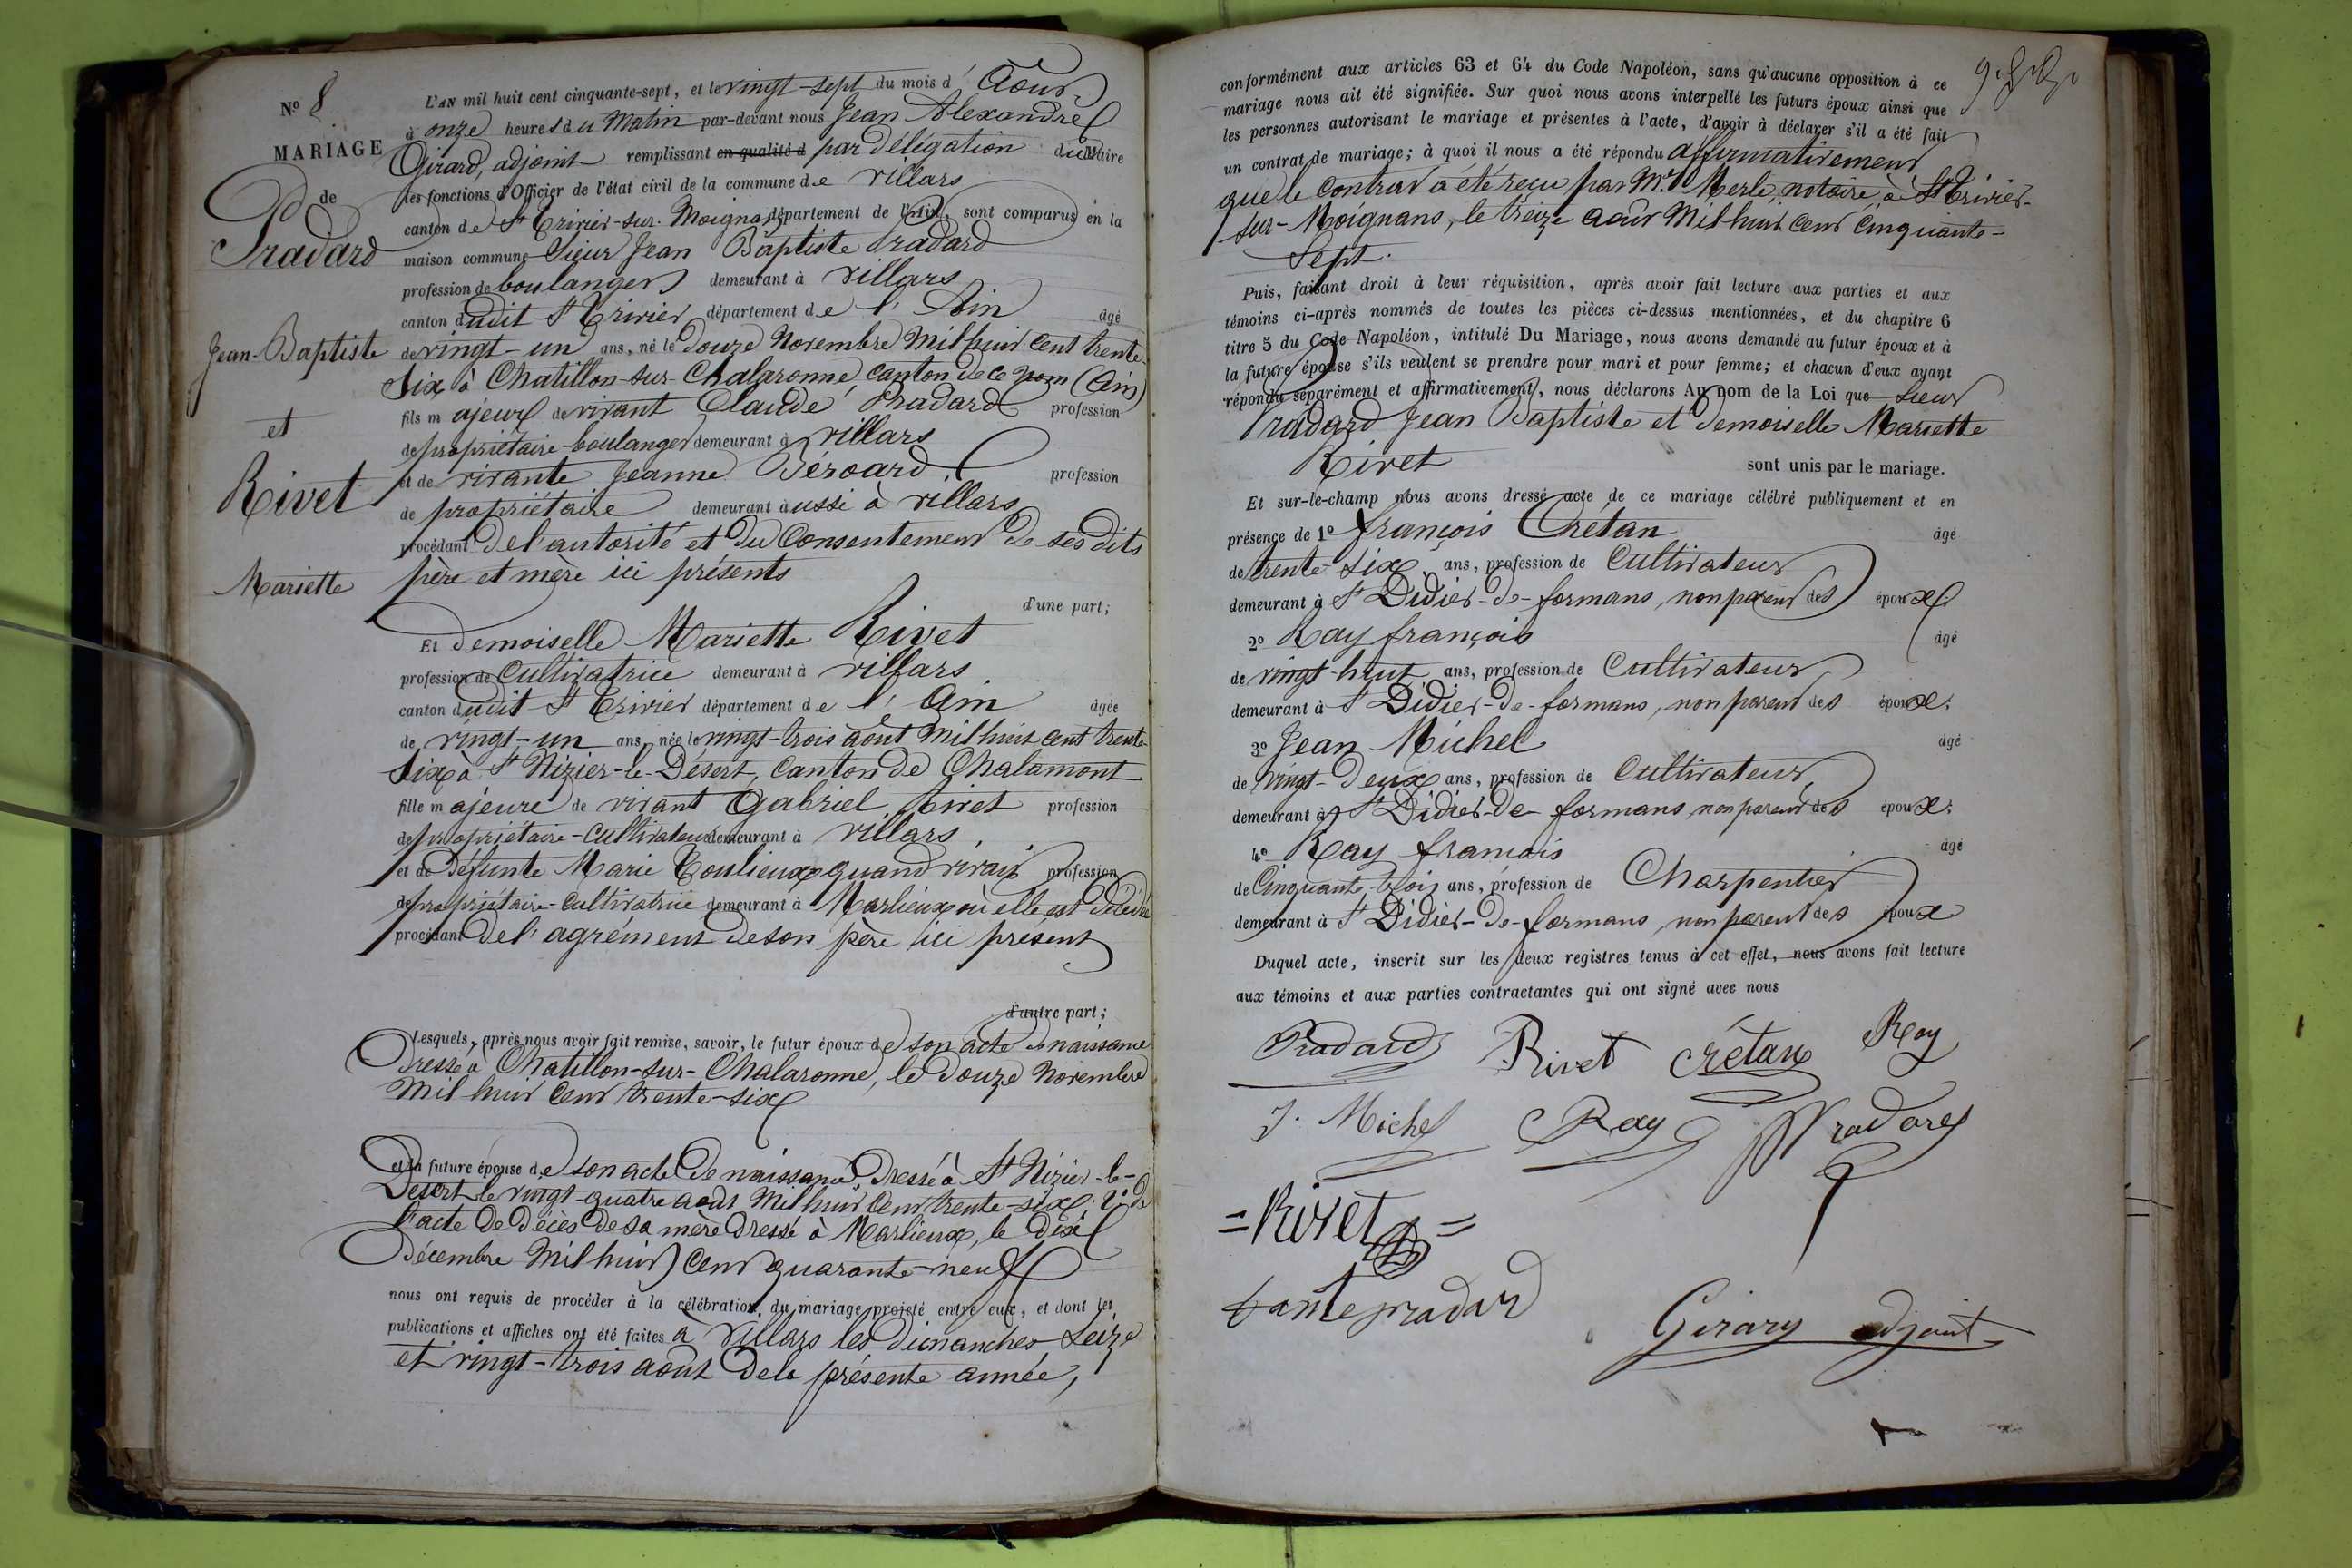 N° 8
MARIAGE
de
Pradard
Jean-Baptiste
et
Rivet
Mariette
L'AN mil huit cent cinquante-sept, et le vingt-sept du mois d' Août
à onze heures du Matin par-devant nous Jean Alexandre
Girard, adjoint remplissant en qualité d par délégation du Maire
les fonctions d'Officier de l'état civil de la commune de villars
canton de St Trivier-sur-Moignans département de l'Ain, sont comparus en la
maison commune Sieur Jean Baptiste Pradard
profession de boulanger demeurant à villars
canton dudit St Trivier département de l' Ain âgé
de vingt-un ans, né le Douze Novembre Mil huit cent trente-
Six à Chatillon-sur-Chalaronne, canton de ce nom (Ain)
fils majeur de vivant Claude Pradard profession
de propriétaire-boulanger demeurant à villars
et de vivante Jeanne Béroard profession
de propriétaire demeurant aussi à villars
procédant de l'autorité et du Consentement de ses dits
père et mère ici présents
d'une part;
Et demoiselle Mariette Rivet
profession de Cultivatrice demeurant à villars
canton dudit St Trivier département de l' Ain âgée
de vingt-un ans, née le vingt-trois août Mil huit cent trente-
Six à St Nizier-le-Désert, Canton de Chalamont
fille majeure de vivant Gabriel Rivet profession
de propriétaire-Cultivateur demeurant à villars
et de Défunte Marie Toulieux quand vivait profession
de propriétaire-Cultivatrice demeurant à Marlieux où elle est décédée
procédant de l'agrément de son père ici présent
d'autre part;
Lesquels, après nous avoir fait remise, savoir, le futur époux de son acte de naissance
Dressé à Chatillon-sur-Chalaronne, le Douze Novembre
Mil huit Cent trente-six
et la future épouse de son acte De naissance, Dressé à St Nizier-le-
Désert le vingt-quatre août Mil huit Cent trente-six; 2° de
l'acte De décès de sa mère dressé à Marlieux, le Dix
Décembre Mil huit Cent quarante-neuf
nous ont requis de procéder à la célébration du mariage projeté entre eux, et dont les
publications et affiches ont été faites à Villars les dimanches Seize
et vingt-trois août De la présente année,
conformément aux articles 63 et 64 du Code Napoléon, sans qu'aucune opposition à ce
mariage nous ait été signifiée. Sur quoi nous avons interpellé les futurs époux ainsi que
les personnes autorisant le mariage et présentes à l'acte, d'avoir à déclarer s'il a été fait
un contrat de mariage; à quoi il nous a été répondu affirmativement
que le Contrat a été reçu par Me Merle, notaire à St Trivier-
sur-Moignans, le treize août Mil huit cent Cinquante-
Sept.
Puis, faisant droit à leur réquisition, après avoir fait lecture aux parties et aux
témoins ci-après nommés de toutes les pièces ci-dessus mentionnées, et du chapitre 6
titre 5 du Code Napoléon, intitulé Du Mariage, nous avons demandé au futur époux et à
la future épouse s'ils veulent se prendre pour mari et pour femme; et chacun d'eux ayant
répondu séparément et affirmativement, nous déclarons Au nom de la Loi que Sieur
Pradard Jean Baptiste et Demoiselle Mariette
Rivet sont unis par le mariage.
Et sur-le-champ nous avons dressé acte de ce mariage célébré publiquement et en
présence de 1° françois Crétan âgé
de trente-Six ans, profession de Cultivateur
demeurant à St Didier-de-formans, non parent des époux;
2° Ray françois âgé
de vingt-huit ans, profession de Cultivateur
demeurant à St Didier-de-formans, non parent des époux;
3° Jean Michel âgé
de vingt-Deux ans, profession de Cultivateur
demeurant à St Didier-De-formans non parent des époux;
4° Ray francois âgé
de Cinquante-trois ans, profession de Charpentier
demeurant à St Didier-De-formans, non parent des époux
Duquel acte, inscrit sur les deux registres tenus à cet effet, nous avons fait lecture
aux témoins et aux parties contractantes qui ont signé avec nous
Pradard Rivet Crétan Ray
J. Michel Ray Pradard
=Rivet=
pradard
Girard adjoint